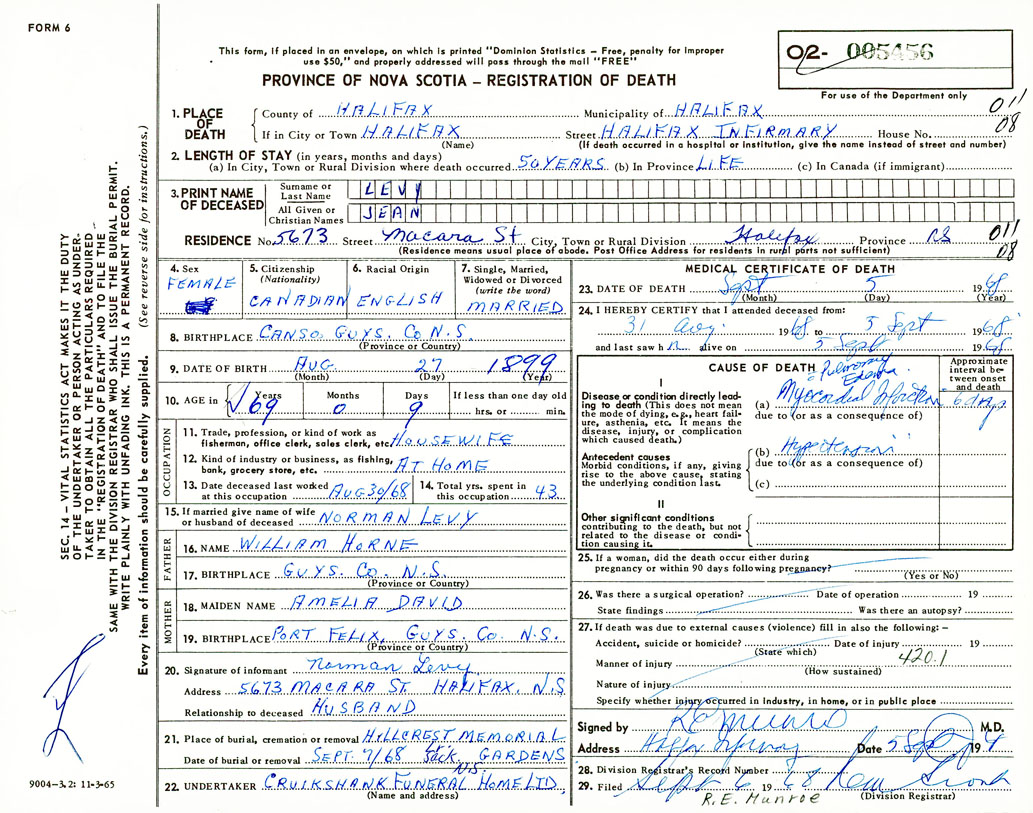 FORM 6
This form, if placed in an envelope, on which is printed "Dominion Statistics – Free, penalty for improper
use $50," and properly addressed will pass through the mail "FREE"
PROVINCE OF NOVA SCOTIA – REGISTRATION OF DEATH
02- 005456
For use of the Department only
011
08
1. PLACE OF DEATH
County of HALIFAX Municipality of HALIFAX
If in City or Town HALIFAX Street HALIFAX INFIRMARY House No.
(Name) (If death occurred in a hospital or institution, give the name instead of street and number)
2. LENGTH OF STAY (in years, months and days)
(a) In City, Town or Rural Division where death occurred 50 YEARS (b) In Province LIFE (c) In Canada (if immigrant)
3. PRINT NAME OF DECEASED
Surname or Last Name LEVY
All Given or Christian Names JEAN
RESIDENCE No. 5673 Street Macara St City, Town or Rural Division Halifax Province NS
011
08
(Residence means usual place of abode. Post Office Address for residents in rural parts not sufficient)
4. Sex
FEMALE
5. Citizenship
(Nationality)
CANADIAN
6. Racial Origin
ENGLISH
7. Single, Married,
Widowed or Divorced
(write the word)
MARRIED
8. BIRTHPLACE CANSO, GUYS. CO N.S.
(Province or Country)
9. DATE OF BIRTH AUG. 27 1899
(Month) (Day) (Year)
10. AGE in
Years Months Days If less than one day old
69 0 9 hrs. or min.
OCCUPATION
11. Trade, profession, or kind of work as
fisherman, office clerk, sales clerk, etc. HOUSEWIFE
12. Kind of industry or business, as fishing,
bank, grocery store, etc. AT HOME
13. Date deceased last worked
at this occupation AUG 30/68
14. Total yrs. spent in
this occupation 43
15. If married give name of wife
or husband of deceased NORMAN LEVY
FATHER
16. NAME WILLIAM HORNE
17. BIRTHPLACE GUYS. CO. N.S.
(Province or Country)
MOTHER
18. MAIDEN NAME AMELIA DAVID
19. BIRTHPLACE PORT FELIX, GUYS. CO. N.S.
(Province or Country)
20. Signature of informant Norman Levy
Address 5673 MACARA ST. HALIFAX. N.S
Relationship to deceased HUSBAND
21. Place of burial, cremation or removal HILLCREST MEMORIAL
GARDENS
Date of burial or removal SEPT. 7/68 Sack.
N.S
22. UNDERTAKER CRUIKSHANK FUNERAL HOME LTD.
(Name and address)
MEDICAL CERTIFICATE OF DEATH
23. DATE OF DEATH Sept 5 1968
(Month) (Day) (Year)
24. I HEREBY CERTIFY that I attended deceased from:
31 Aug. 1968 to 5 Sept 1968
and last saw h alive on 5 Sept 1968
CAUSE OF DEATH
Approximate
interval be-
tween onset
and death
I
Disease or condition directly lead-
ing to death (This does not mean
the mode of dying, e.g., heart fail-
ure, asthenia, etc. It means the
disease, injury, or complication
which caused death.)
Pulmonary
Edema
(a) Myocardial Infarction 6 days
due to (or as a consequence of)
Antecedent causes
Morbid conditions, if any, giving
rise to the above cause, stating
the underlying condition last.
(b) Hypertension
due to (or as a consequence of)
(c)
II
Other significant conditions
contributing to the death, but not
related to the disease or condi-
tion causing it.
25. If a woman, did the death occur either during
pregnancy or within 90 days following pregnancy?
(Yes or No)
26. Was there a surgical operation? Date of operation 19
State findings Was there an autopsy?
27. If death was due to external causes (violence) fill in also the following: –
Accident, suicide or homicide? Date of injury 19
(State which)
420.1
Manner of injury
(How sustained)
Nature of injury
Specify whether injury occurred in industry, in home, or in public place
Signed by R E Munroe M.D.
Address Date 5 Sept 19
28. Division Registrar's Record Number
29. Filed Sept 6 1968
R.E. Munroe (Division Registrar)
SEC. 14 – VITAL STATISTICS ACT MAKES IT THE DUTY
OF THE UNDERTAKER OR PERSON ACTING AS UNDER-
TAKER TO OBTAIN ALL THE PARTICULARS REQUIRED
IN THE "REGISTRATION OF DEATH" AND TO FILE THE
SAME WITH THE DIVISION REGISTRAR WHO SHALL ISSUE THE BURIAL PERMIT.
WRITE PLAINLY WITH UNFADING INK. THIS IS A PERMANENT RECORD.
Every item of information should be carefully supplied. (See reverse side for instructions.)
9004–3.2: 11-3-65